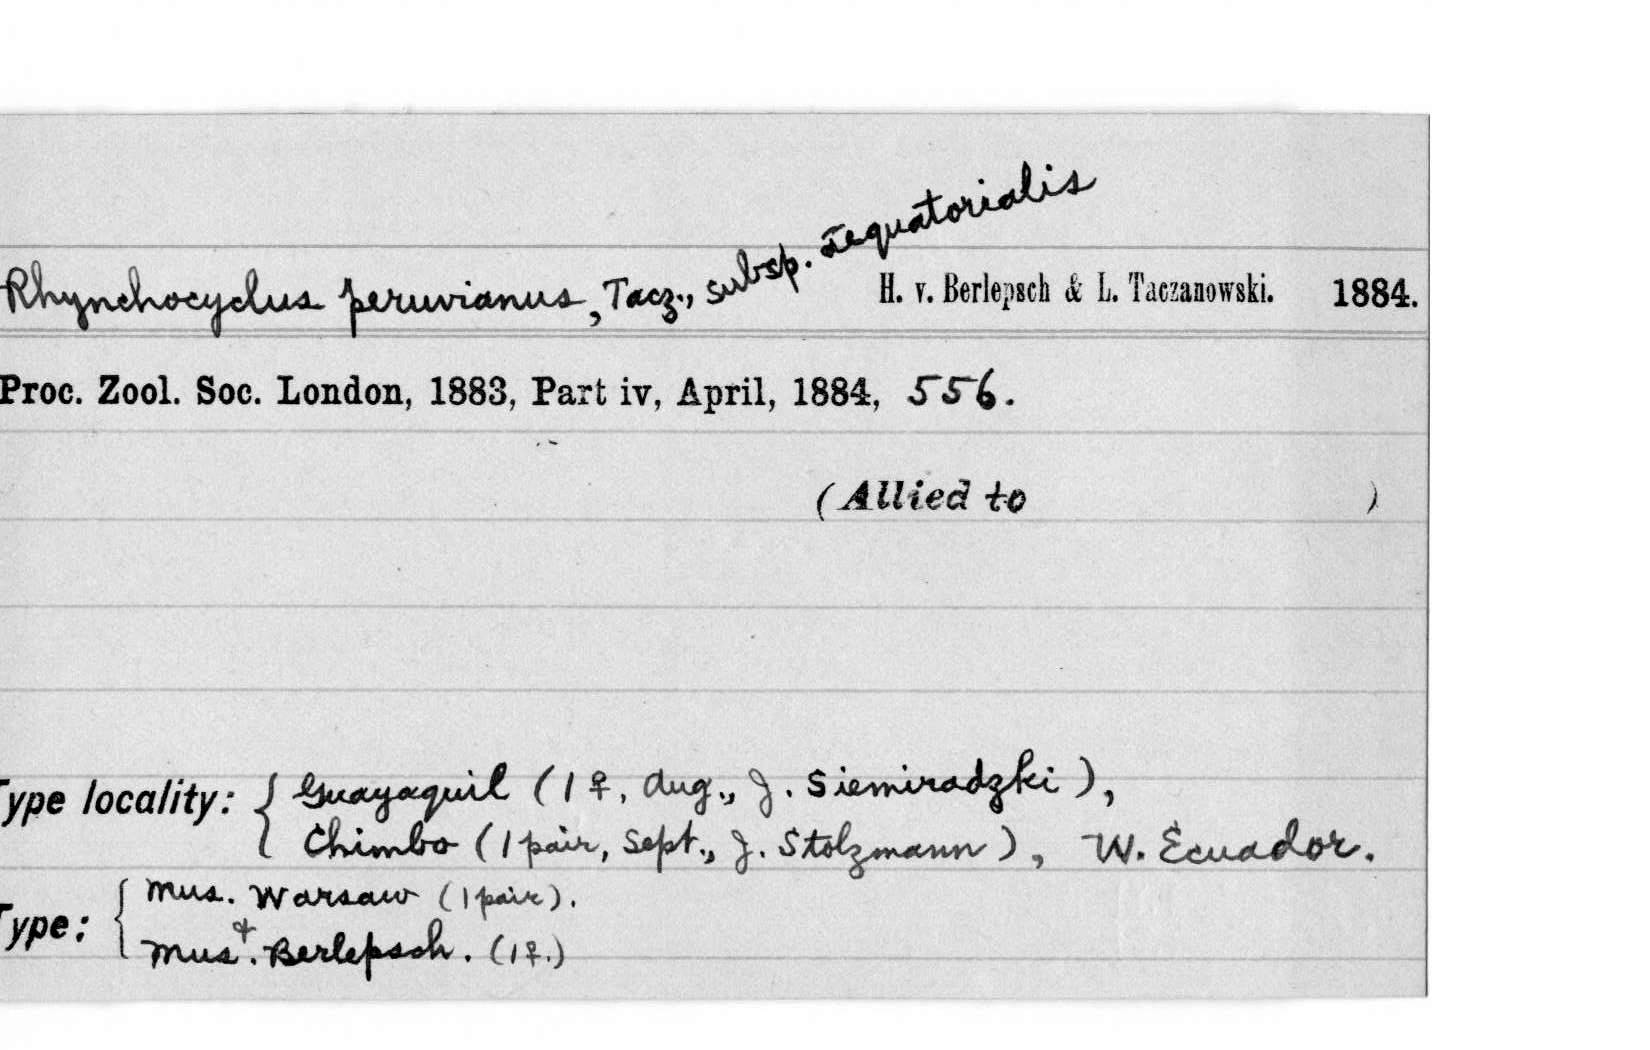 Rhynchocyclus peruvianus, Tacz., subsp. æequatorialis H. v. Berlepsch & L. Taczanowski. 1884.
Proc. Zool. Soc. London, 1883, Part iv, April, 1884, 556.
(Allied to )
Type locality: { Guayaquil (1 ♀, Aug., J. Siemiradzki),
Chimbo (1 pair, Sept., J. Stolzmann), W. Ecuador.
Type: { Mus. Warsaw (1 pair).
&
Mus. Berlepsch. (1 ♀.)